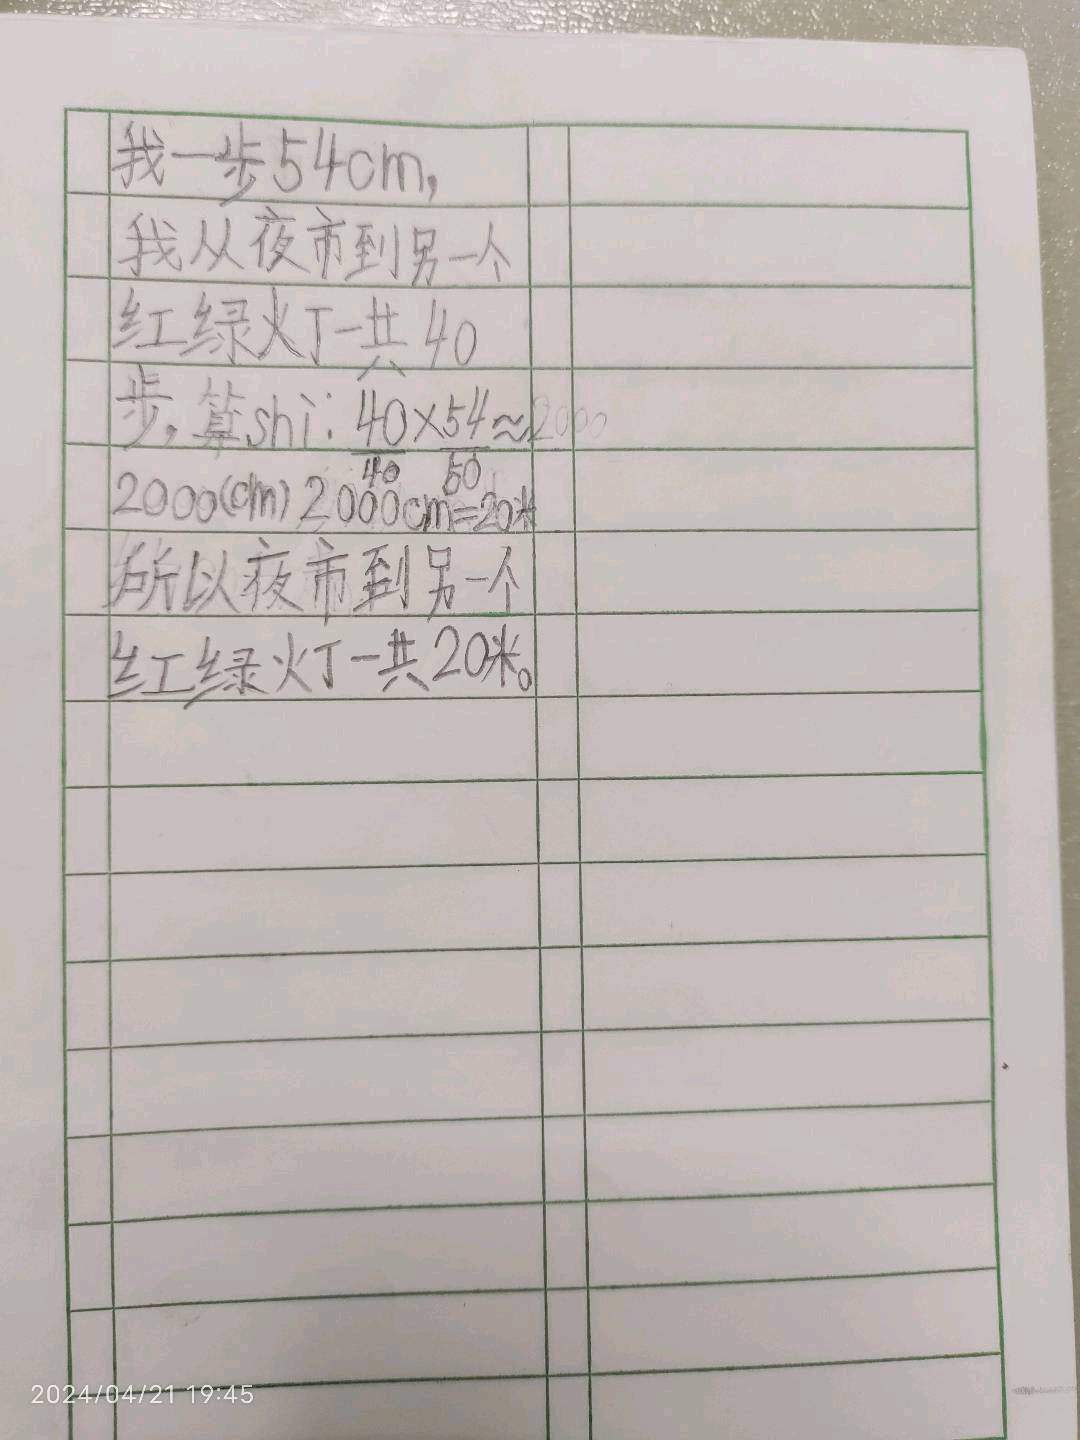 我一步54cm,
我从夜市到另一个
红绿火丁一共40
步,算shi:40×54≈2000
40 50
2000(cm) 2000cm=20米
所以夜市到另一个
红绿火丁一共20米。
2024/04/21 19:45